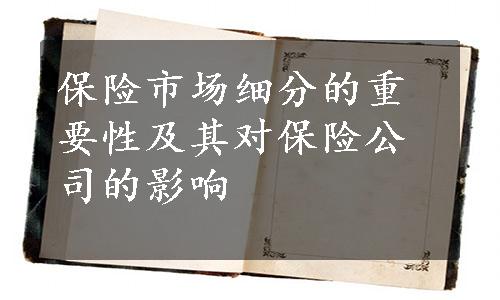 保险市场细分的重
要性及其对保险公
司的影响